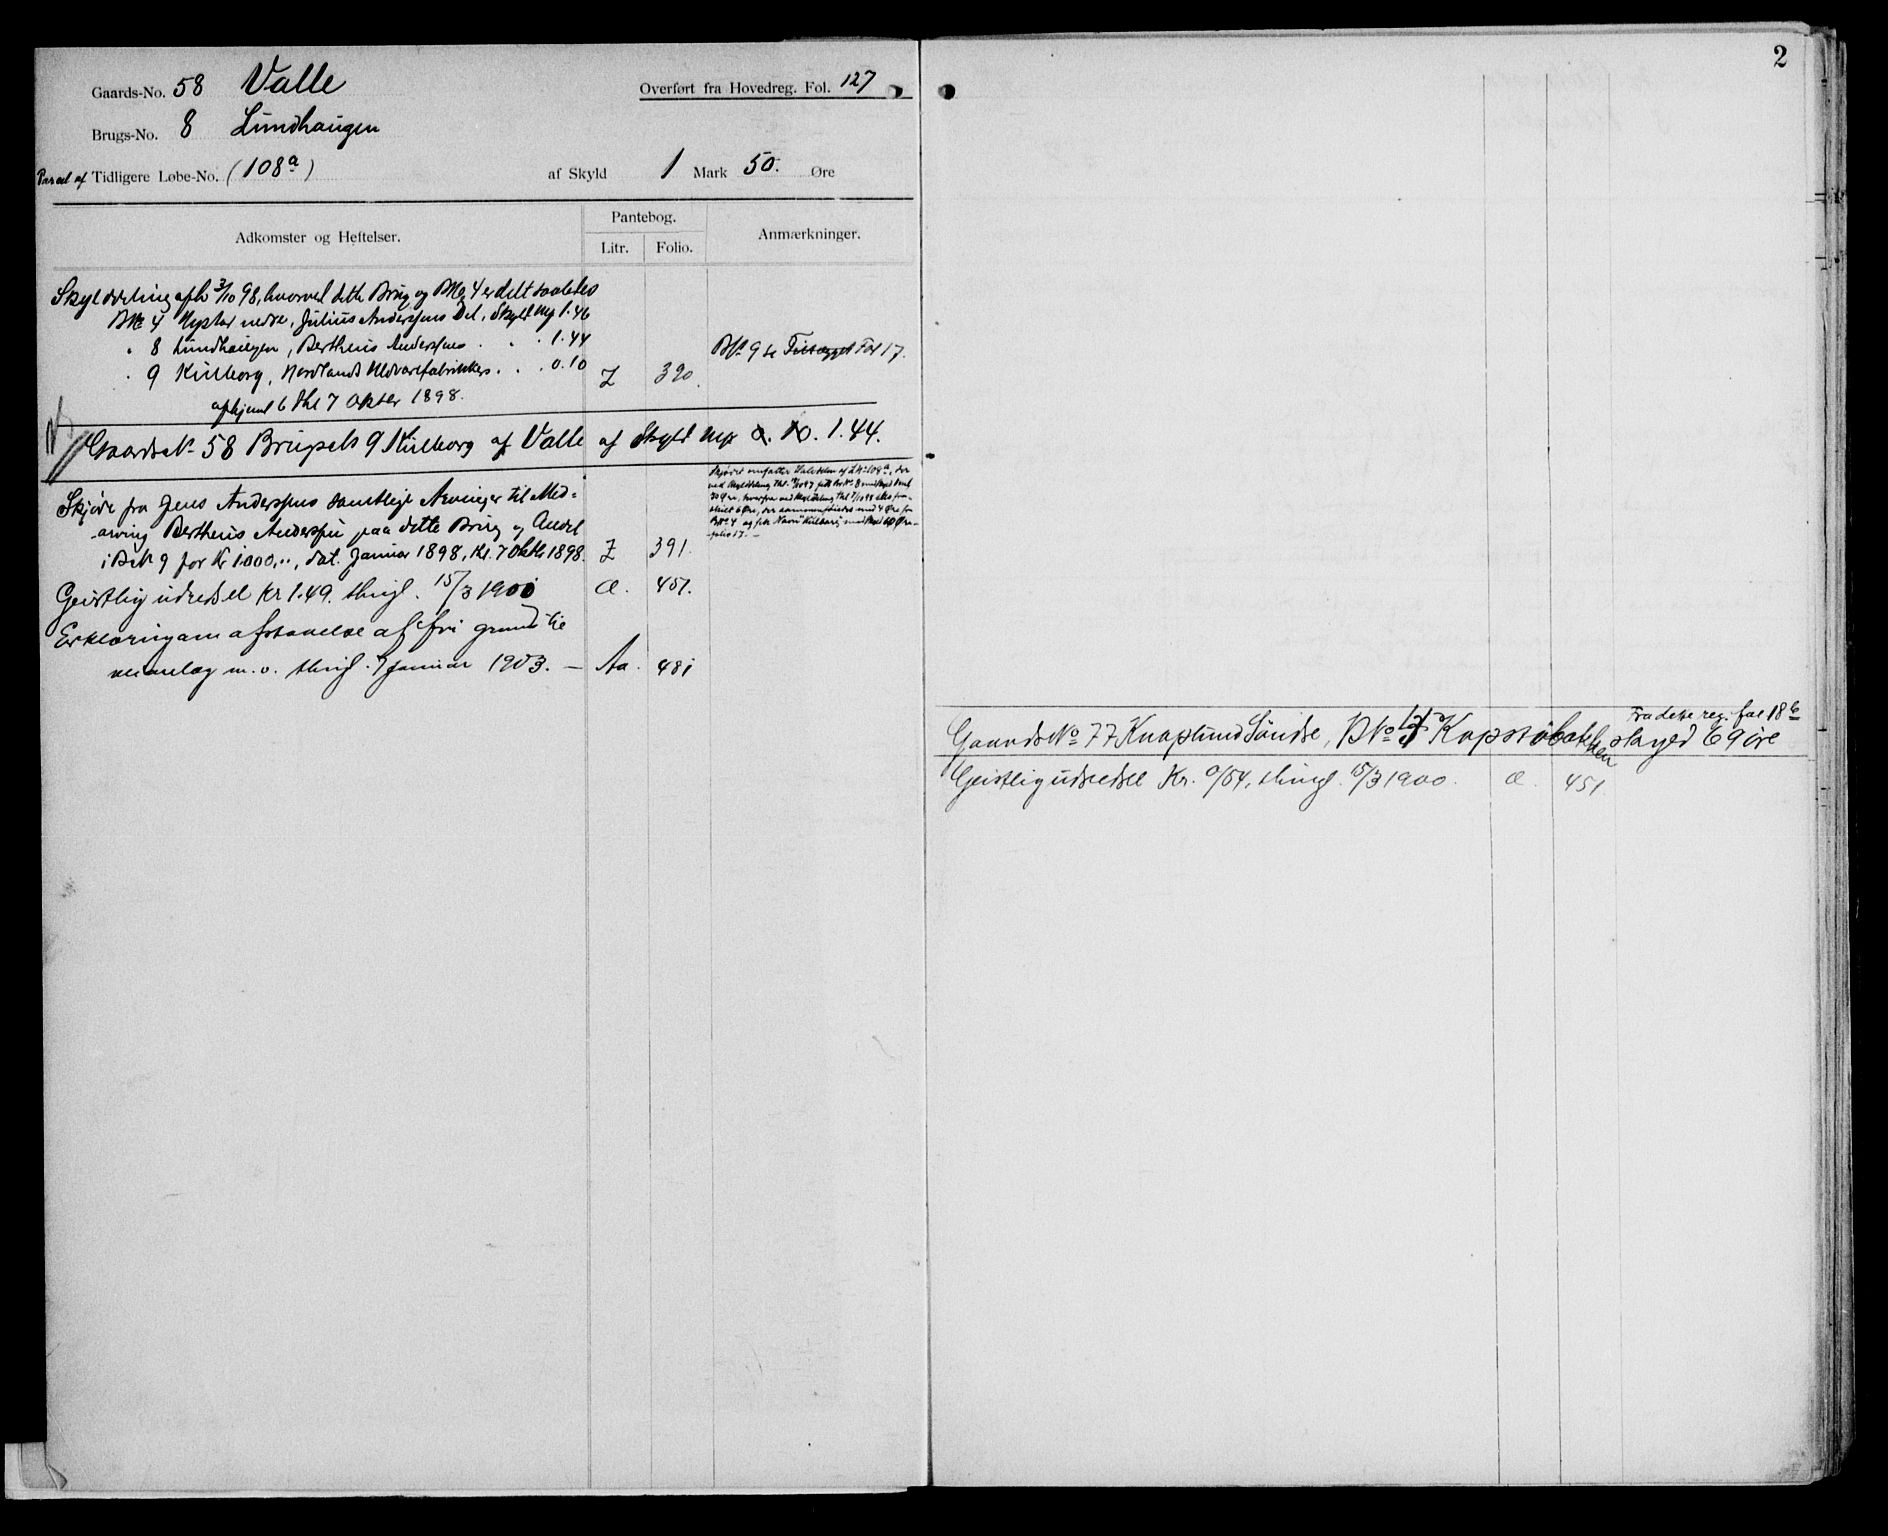 Gaards-No. 58 Valle
Overført fra Hovedreg. Fol. 127
Brugs-No. 8 Lundhaugen
Parcel af Tidligere Løbe-No. (108a) af Skyld 1 Mark 50. Øre
Adkomster og Heftelser.
Pantebog.
Litr. Folio.
Anmærkninger.
Skylddeling afh 3/10 98, hvorved dette Brug og BNo 4 er delt saaledes
BNo 4 nedre, Julius Anderssens Del, Skyld Mp 1.46
" 8 Lundhaugen, Bertheus Anderssens . . . 1.44
" 9 Kulborg, Nordlands Uldvarefabrikkers . . . 0.10 Z 390.
afhjeml 6 thl 7 Oktbr 1898.
BNo 9 se Tillægget Fol 17.
Gaards No 58 Brugsnr 9 Kulborg af Valle af Skyld Mp 0. 10. 1.44.
Skjøde fra Jens Anderssens samtlige Arvinger til Med-
arving Bertheus Anderssen paa dette Brug og Andel
i BNo 9 for Kr 1000,"", dat. Januar 1898, thl. 7 Oktbr 1898. Z 391.
Geistlig udredsel Kr 1.49. thingl. 15/3 1900 Æ. 451.
Erklæring om afstaaelse af fri grund til
veianlæg m.v. thingl. 7 Januar 1903. — Aa. 481
2
Fra dette reg. fol 18b
Gaards No 77 Knaplund Søndre, BNo 13 Kopstøbakken skyld 69 øre
Geistlig udredsel Kr. 0/54, thingl. 15/3 1900. Æ. 451.